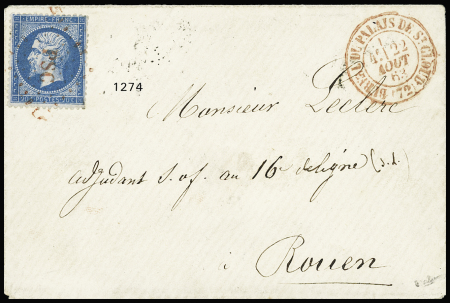 EMPIRE FRANC
20c POSTES 20c
PSC
1274
BUREAU DU PALAIS DE ST CLOUD
12
AOUT
63
(72)
Monsieur Leclere
adjudant S. of. au 16e de ligne (s.l.)
à Rouen